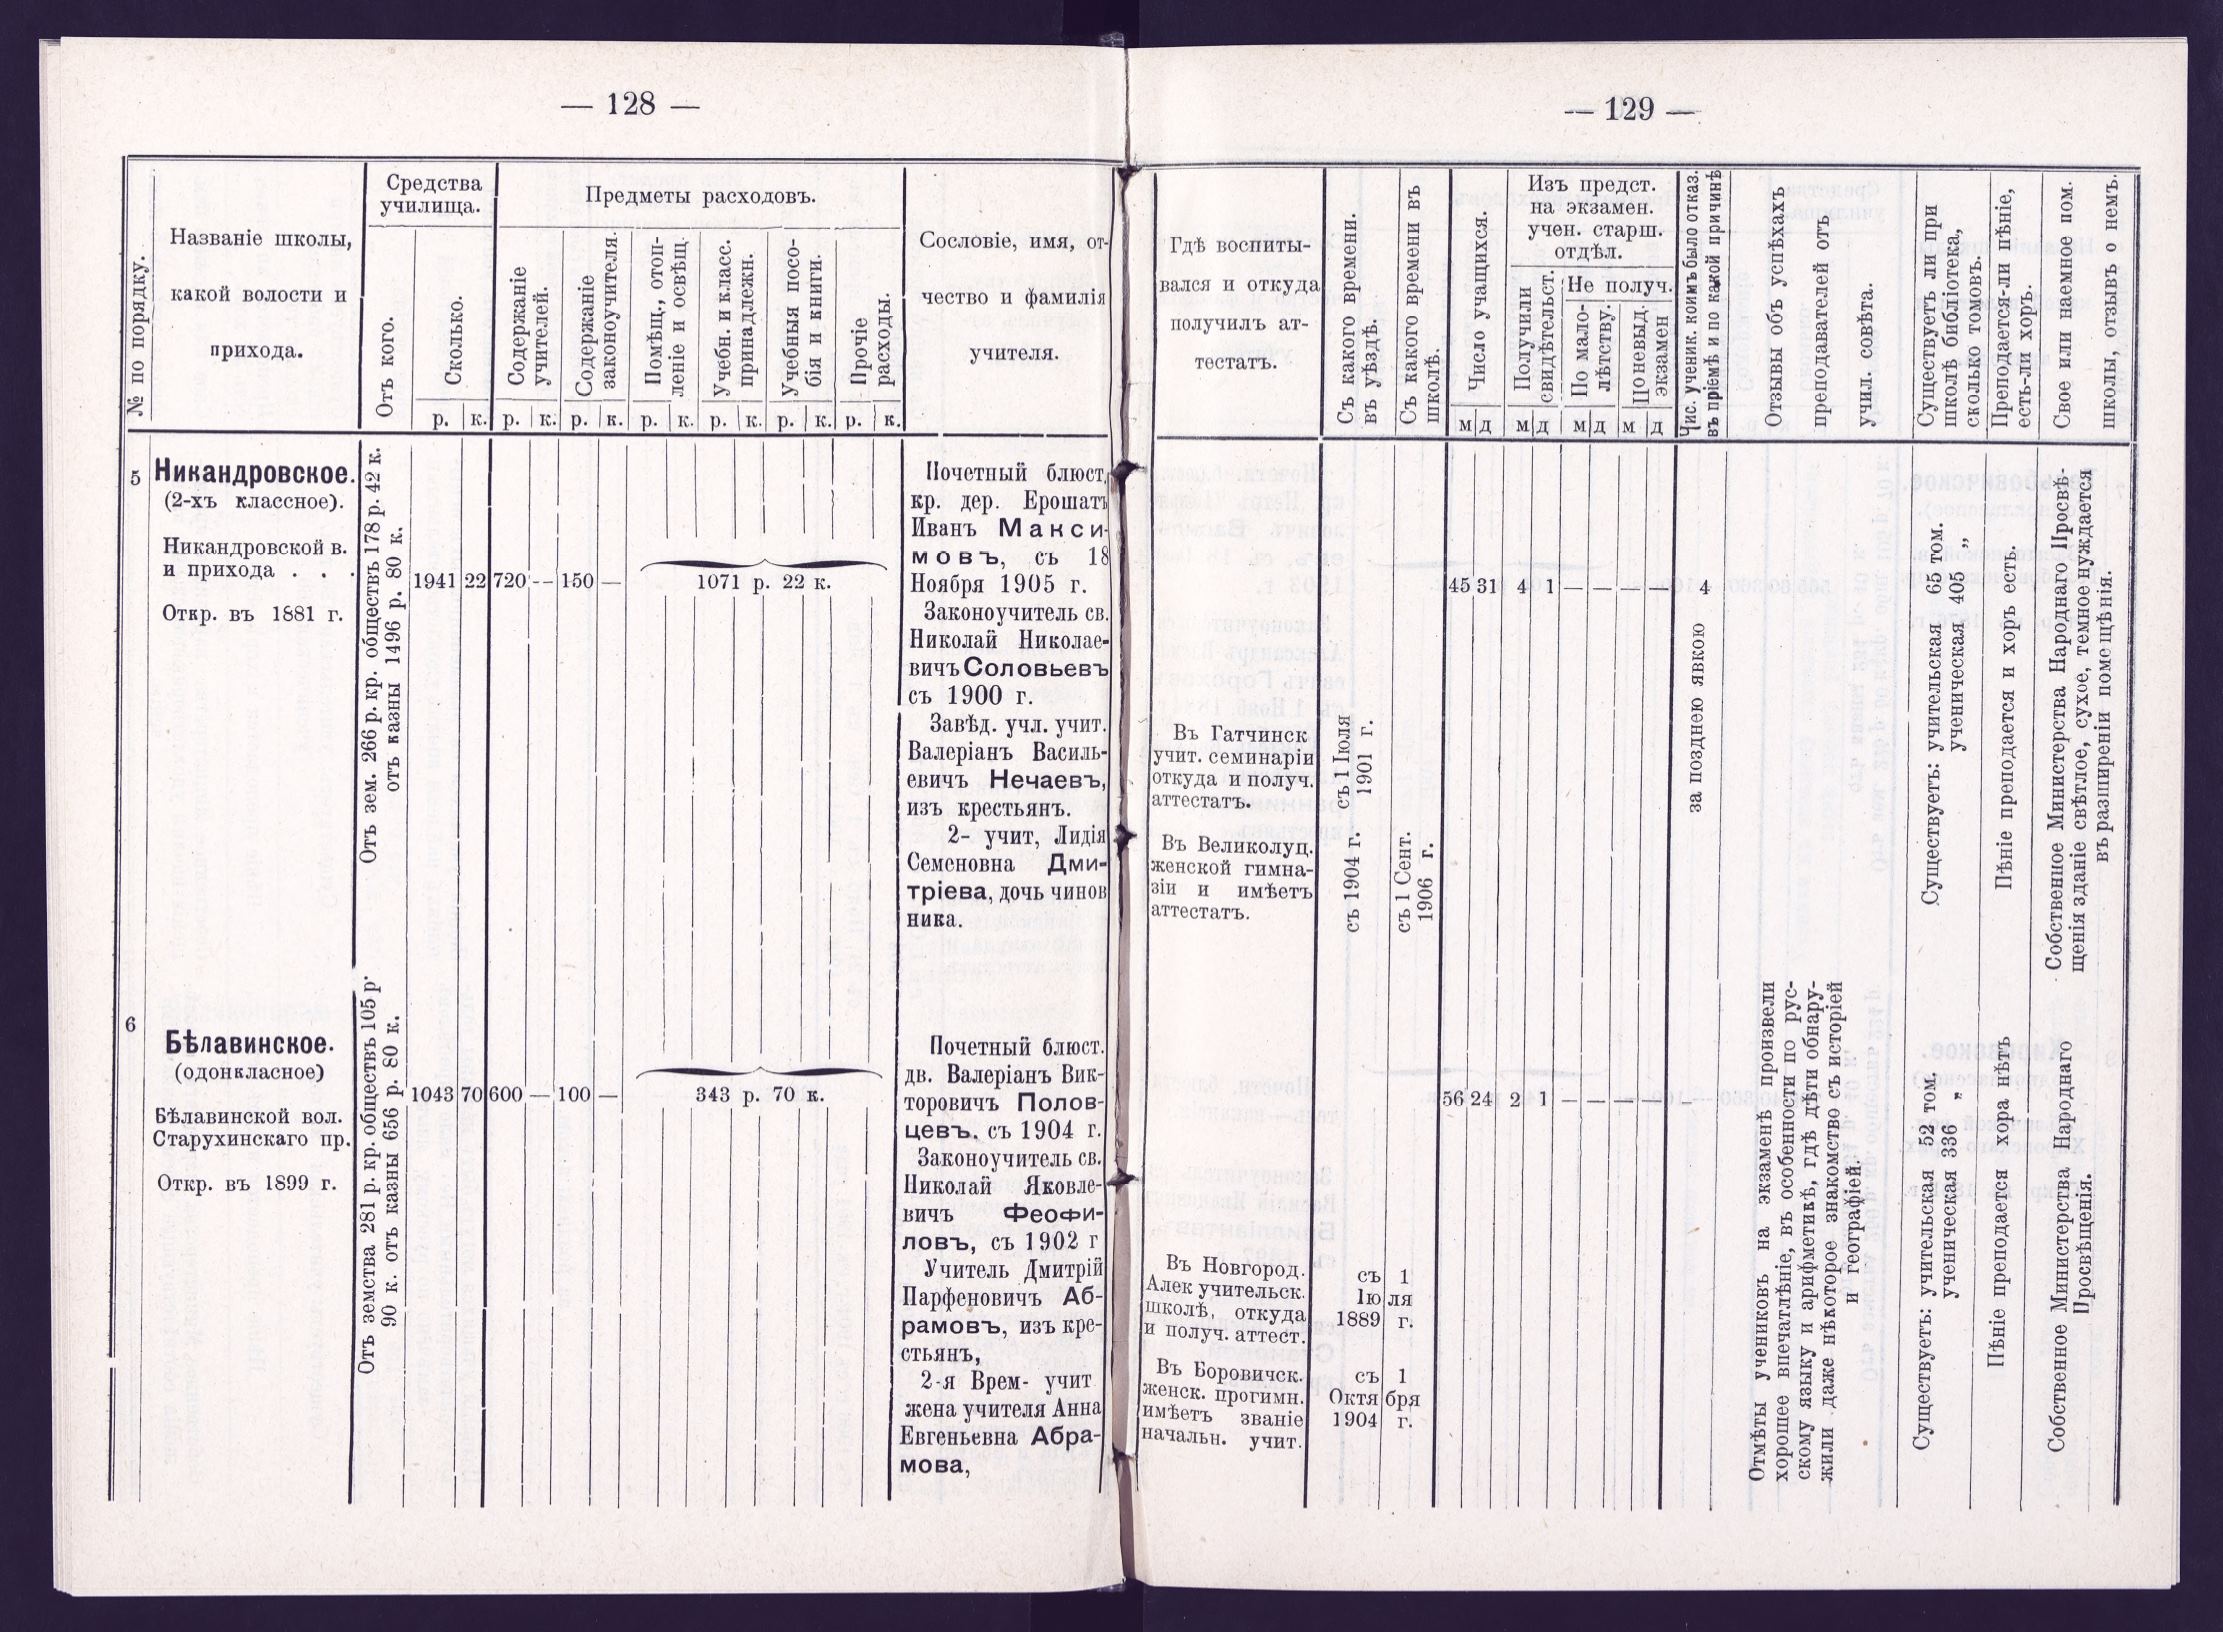 — 128 —
№ по порядку.
Названіе школы,
какой волости и
прихода.
Средства
училища.
Отъ кого.
Сколько.
р. к.
Предметы расходовъ.
Содержаніе
учителей.
р. к.
Содержаніе
законоучителя.
р. к.
Помѣщ., отоп-
леніе и освѣщ.
р. к.
Учебн. и класс.
принадлежн.
р. к.
Учебныя посо-
бія и книги.
р. к.
Прочіе
расходы.
р. к.
Сословіе, имя, от-
чество и фамилія
учителя.
5
Никандровское.
(2-хъ классное).
Никандровской в.
и прихода . . .
Откр. въ 1881 г.
Отъ зем. 266 р. кр. обществъ 178 р. 42 к.
отъ казны 1496 р. 80 к.
1941 22 720 -- 150 — 1071 р. 22 к.
Почетный блюст.
кр. дер. Ерошать
Иванъ Макси-
мовъ, съ 18
Ноября 1905 г.
Законоучитель св.
Николай Николае-
вичъ Соловьевъ
съ 1900 г.
Завѣд. учл. учит.
Валеріанъ Василь-
евичъ Нечаевъ,
изъ крестьянъ.
2- учит, Лидія
Семеновна Дми-
тріева, дочь чинов
ника.
6
Бѣлавинское.
(одонкласное)
Бѣлавинской вол.
Старухинскаго пр.
Откр. въ 1899 г.
Отъ земства 281 р. кр. обществъ 105 р
90 к. отъ казны 656 р. 80 к.
1043 70 600 — 100 — 343 р. 70 к.
Почетный блюст.
дв. Валеріанъ Вик-
торовичъ Полов-
цевъ. съ 1904 г.
Законоучитель св.
Николай Яковле-
вичъ Феофи-
ловъ, съ 1902 г
Учитель Дмитрій
Парфеновичъ Аб-
рамовъ, изъ кре-
стьянъ,
2-я Врем- учит
жена учителя Анна
Евгеньевна Абра-
мова,
— 129 —
Гдѣ воспиты-
вался и откуда
получилъ ат-
тестатъ.
Съ какого времени.
въ уѣздѣ.
Съ какого времени въ
школѣ.
Число учащихся.
м д
Изъ предст.
на экзамен.
учен. старш.
отдѣл.
Получили
свидѣтельст.
м д
Не получ.
По мало-
лѣтству.
м д
Поневыд.
экзамен
м д
Чис. ученик. коимъ было отказ.
въ пріемѣ и по какой причинѣ
Отзывы объ успѣхахъ
преподавателей отъ
учил. совѣта.
Существуетъ ли при
школѣ библіотека,
сколько томовъ.
Преподается-ли пѣніе,
есть-ли хоръ.
Свое или наемное пом.
школы, отзывъ о немъ.
45 31 4 1 — — — — 4
за позднею явкою
Въ Гатчинск
учит. семинаріи
откуда и получ.
аттестатъ.
съ 1 Іюля
1901 г.
Въ Великолуц.
женской гимна-
зіи и имѣетъ
аттестатъ.
съ 1904 г.
съ 1 Сент.
1906 г.
Существуетъ: учительская 65 том.
ученическая 405 „
Пѣніе преподается и хоръ есть.
Собственное Министерства Народнаго Просвѣ-
щенія зданіе свѣтлое, сухое, темное нуждается
въ разширеніи помещѣнія.
56 24 2 1 — — — — —
Въ Новгород.
Алек учительск.
школѣ, откуда
и получ. аттест.
съ 1
Ію ля
1889 г.
Въ Боровичск.
женск. прогимн.
имѣетъ званіе
начальн. учит.
съ 1
Октя бря
1904 г.
Отмѣты учениковъ на экзаменѣ произвели
хорошее впечатлѣніе, въ особенности по рус-
скому языку и арифметикѣ, гдѣ дѣти обнару-
жили даже нѣкоторое знакомство съ исторіей
и географіей.
Существуетъ: учительская 52 том.
ученическая 336 „
Пѣніе преподается хора нѣтъ
Собственное Министерства Народнаго
Просвѣщенія.